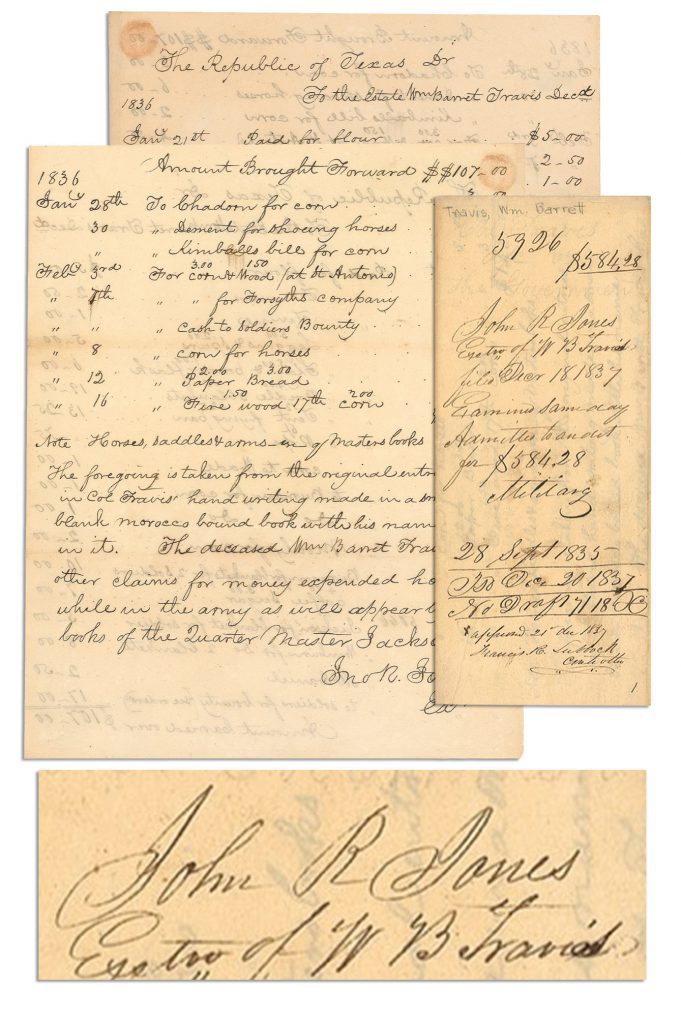 The Republic of Texas Dr
To the Estate Wm Barret Travis Decd
1836
Jany 21st Paid for flour $5-00
2-50
1-00
1836 Amount Brought Forward $$107-00
Jany 28th To Chadorn for corn
30 " Dement for shoeing horses
" " Kimballs bill for corn
3.00 1.50
Feby 3rd For corn & Wood (at St Antonio)
" 7th " " for Forsyths company
" " " Cash to soldiers Bounty
" 8 " corn for horses
$2.00 3.00
" 12 " Paper Bread
1.50 2.00
" 16 " Fire wood 17th corn
Note Horses, saddles & arms - on Qr Masters books
The foregoing is taken from the original entr
in Col Travis' hand writing made in a sm
blank morocco bound book with his nam
in it. The deceased Wm Barret Trav
other claims for money expended
while in the army as will appear b
books of the Quarter Master Jackso
Jno R. Jo
Travis, Wm. Barrett
5926
$584.28
John R Jones
Exetor of W B Travis
filed Decr 18 1837
Examined same day
Admitted to audit
for $584.28
Military
28 Sept 1835
Psd Dec 20 1837
No Draft 71 18
appvd 21 Dec 1837
Francis R. Lubbock
Controller
1
John R Jones
Exetor of W B Travis